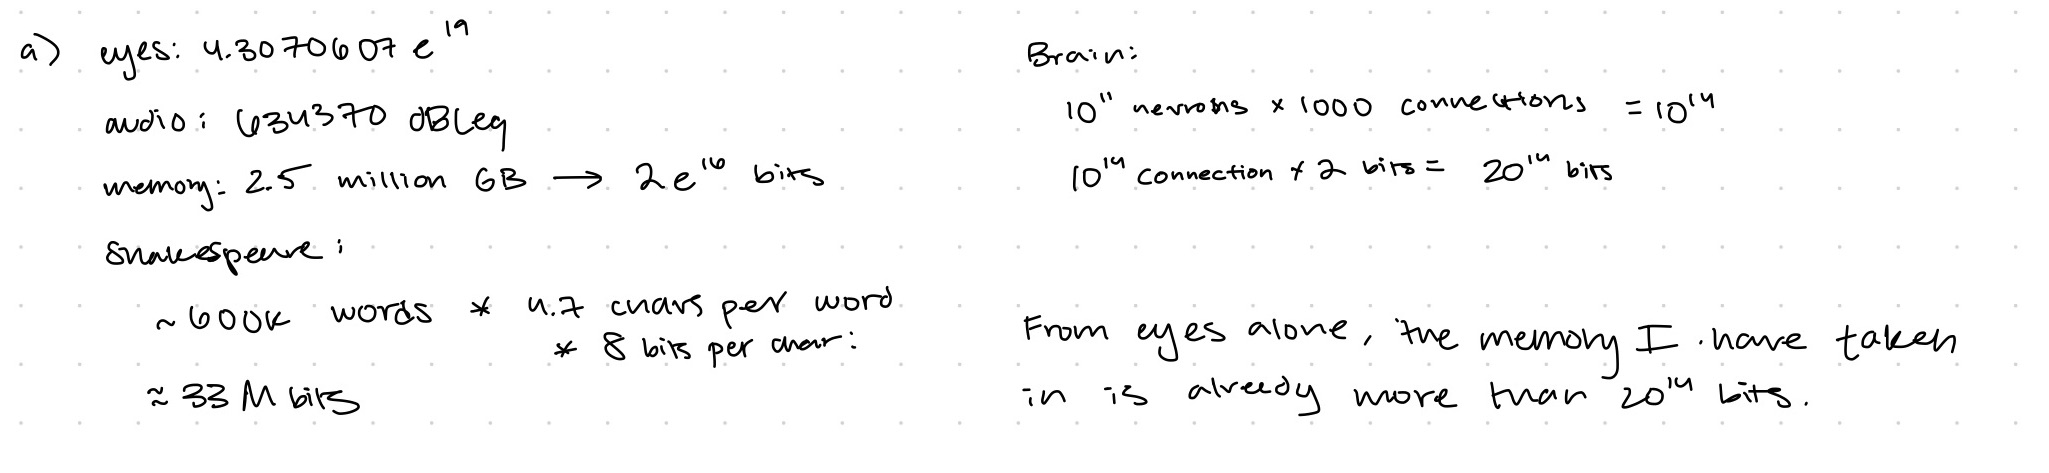 a) eyes: 4.3070607 e^19
audio: 634370 dBLeq
memory: 2.5 million GB → 2e^16 bits
Shakespeare:
~600K words * 4.7 chars per word
* 8 bits per char:
≈ 33 M bits
Brain:
10^11 neurons × 1000 connections = 10^14
10^14 connection * 2 bits = 20^14 bits
From eyes alone, the memory I have taken
in is already more than 20^14 bits.